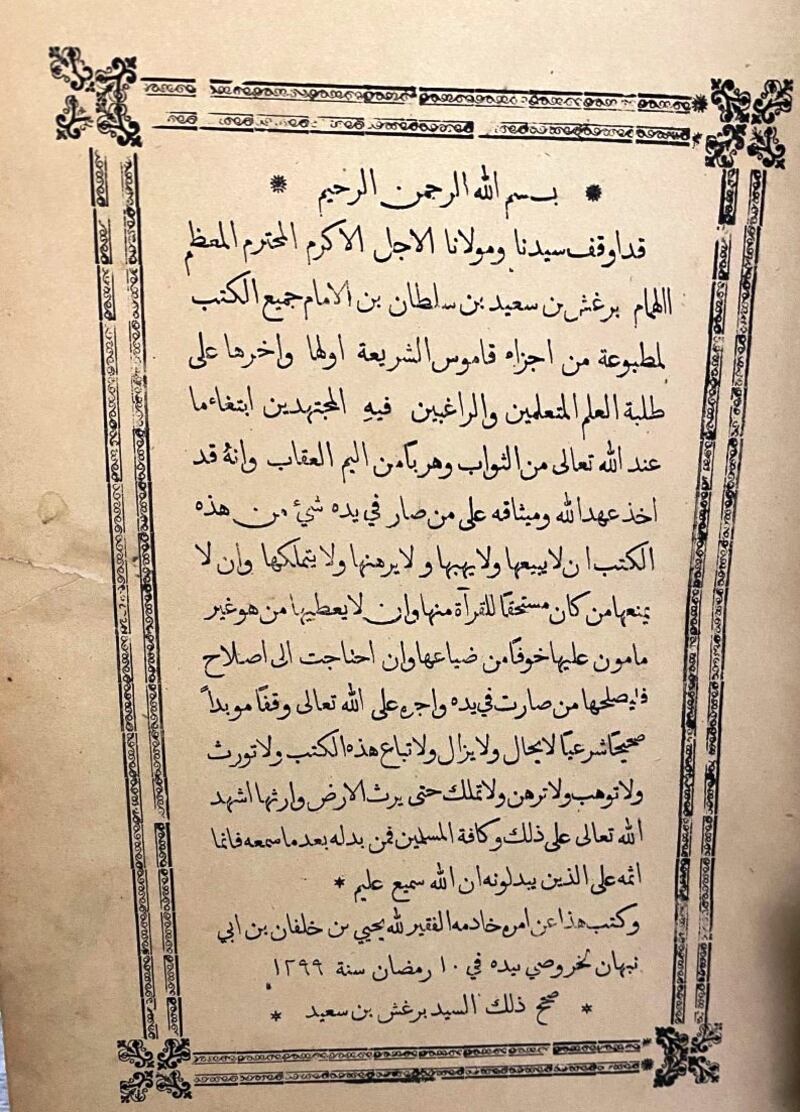 بسم الله الرحمن الرحيم
قد اوقف سيدنا ومولانا الاجل الاكرم المحترم المعظم
الهمام برغش بن سعيد بن سلطان بن الامام جميع الكتب
لمطبوعة من اجزاء قاموس الشريعة اولها واخرها على
طلبة العلم المتعلمين والراغبين فيهِ المجتهدين ابتغاء ما
عند الله تعالى من الثواب وهرباً من اليم العقاب وانهُ قد
اخذ عهد الله وميثاقه على من صار في يده شيء من هذه
الكتب ان لا يبيعها ولا يهبها ولا يرهنها ولا يتملكها وان لا
يمنعها من كان مستحقا للقرآة منها وان لا يعطيها من هو غير
مامون عليها خوفاً من ضياعها وان احتاجت الى اصلاح
فليصلحها من صارت في يده واجره على الله تعالى وقفاً موبداً
صحيحاً شرعياً لا يحال ولا يزال ولا تباع هذه الكتب ولا تورث
ولا توهب ولا ترهن ولا تملك حتى يرث الارض وارثها اشهد
الله تعالى على ذلك وكافة المسلمين فمن بدله بعد ما سمعه فانما
اثمه على الذين يبدلونه ان الله سميع عليم *
وكتب هذا عن امره خادمه الفقير لله يحيي بن خلفان بن ابي
نبهان لخروصي بيده في ١٠ رمضان سنة ١٢٩٩
* صحح ذلك السيد برغش بن سعيد *